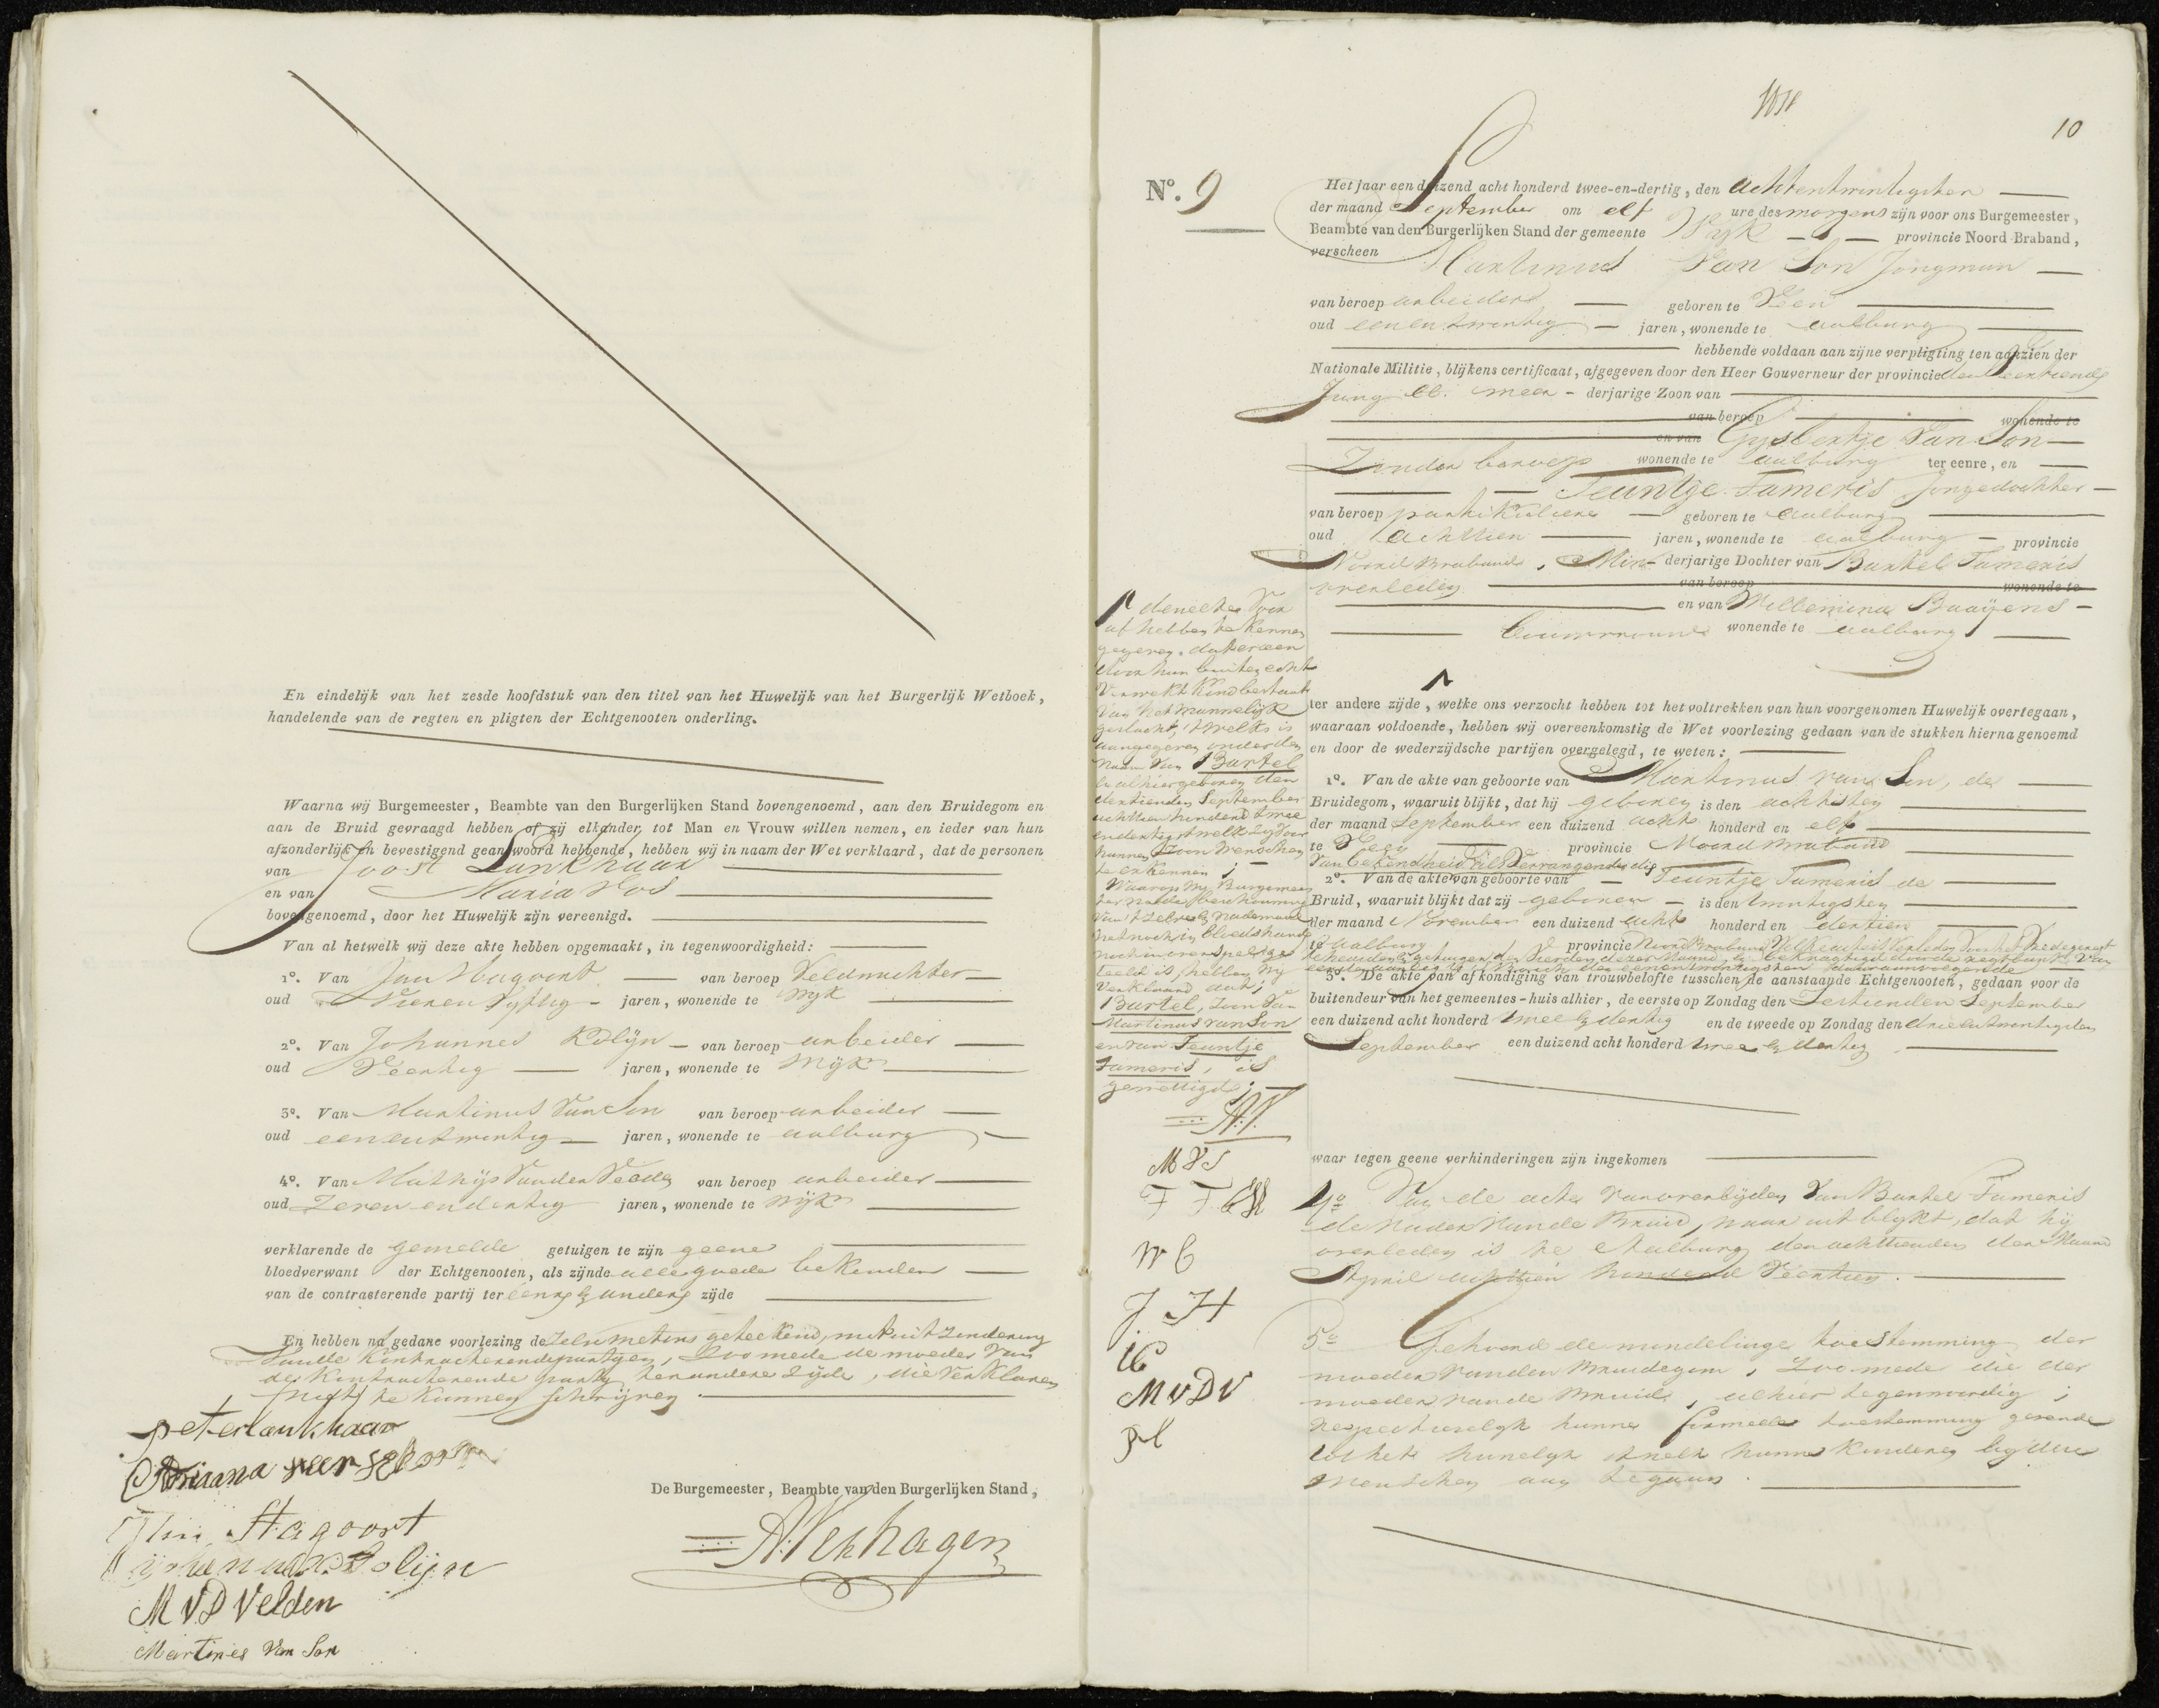 En eindelijk van het zesde hoofdstuk van den titel van het Huwelijk van het Burgerlijk Wetboek,
handelende van de regten en pligten der Echtgenooten onderling.
Waarna wij Burgemeester, Beambte van den Burgerlijken Stand bovengenoemd, aan den Bruidegom en
aan de Bruid gevraagd hebben of zij elkander tot Man en Vrouw willen nemen, en ieder van hun
afzonderlijk en bevestigend geantwoord hebbende, hebben wij in naam der Wet verklaard, dat de personen
van Joost Lankhaar
en van Maria Vos
bovengenoemd, door het Huwelijk zijn vereenigd.
Van al hetwelk wij deze akte hebben opgemaakt, in tegenwoordigheid:
1º. Van Jan Hagoort van beroep Veldwachter
oud Vieren Vyftig jaren, wonende te Wyk
2º. Van Johannes Kolijn van beroep arbeider
oud Veertig jaren, wonende te Wijk
3º. Van Martinus Van Son van beroep arbeider
oud eenentwintig jaren, wonende te aalburg
4º. Van Mathijs Van den Velden van beroep arbeider
oud Zeven en dertig jaren, wonende te Wijk
verklarende de gemelde getuigen te zijn geene
bloedverwant der Echtgenooten, als zijnde alle goede bekenden
van de contracterende partij ter eenre & andere zijde
En hebben na gedane voorlezing dezelve met ons geteekend, met uitzondering
Van de Kontracterende partyen, Zoo mede de moeder Van
de Kontracterende party ter andere Zijde, die Verklaren
niet te kunnen schrijven
peter lankhaar
Adriaana verschoor
Jan Hagoort
Kolijn
M V D Velden
Martines Van Son
De Burgemeester, Beambte van den Burgerlijken Stand,
A. Verhagen
10
Nº. 9
Het jaar een duizend acht honderd twee-en-dertig, den achtentwintigsten
der maand September om elf ure des morgens zijn voor ons Burgemeester,
Beambte van den Burgerlijken Stand der gemeente Wijk provincie Noord Braband,
verscheen Martinus Van Son Jongman
van beroep arbeider geboren te Veen
oud eenentwintig jaren, wonende te aalburg
hebbende voldaan aan zijne verpligting ten aanzien der
Nationale Militie, blijkens certificaat, afgegeven door den Heer Gouverneur der provincie
meer-derjarige Zoon van
van beroep wonende te
en van Gysbertje Van Son
Zonder beroep wonende te aalburg ter eenre, en
Teuntje Tameris Jongedochter
van beroep partikuliere geboren te aalburg
oud achttien jaren, wonende te aalburg provincie
Noord Braband, Min-derjarige Dochter van Bartel Tameris
overleden van beroep wonende te
en van Willemina Baaijens
Bouwvrouw wonende te aalburg
ter andere zijde, welke ons verzocht hebben tot het voltrekken van hun voorgenomen Huwelijk overtegaan,
waaraan voldoende, hebben wij overeenkomstig de Wet voorlezing gedaan van de stukken hierna genoemd
en door de wederzijdsche partijen overgelegd, te weten:
1º. Van de akte van geboorte van Martinus van Son, de
Bruidegom, waaruit blijkt, dat hij geboren is den achtsten
der maand September een duizend acht honderd en elf
te Veen provincie Noord Braband
Van bekendheid Vervangende die
2º. Van de akte van geboorte van Teuntje Tameris de
Bruid, waaruit blijkt dat zij geboren is den twintigsten
der maand November een duizend acht honderd en dertien
te aalburg provincie Noord Braband
3º. De akte van afkondiging van trouwbelofte tusschen de aanstaande Echtgenooten, gedaan voor de
buitendeur van het gemeentes-huis alhier, de eerste op Zondag den Zestienden September
een duizend acht honderd twee & dertig en de tweede op Zondag den drieentwintigsten
September een duizend acht honderd twee & dertig
waar tegen geene verhinderingen zijn ingekomen
4º Van de acte van overlijden Van Bartel Tameris
de Vader Van de Bruid, waar uit blykt, dat hij
overleden is te Aalburg den achttienden der Maand
April achttien honderd Veertien.
5º Gehoord de mondelinge toestemming der
moeder van den Bruidegom, Zoo mede die der
moeder van de Bruid, alhier tegenwoordig;
respectievelyk hunne formeele toestemming gevende
tot het huwelyk 'twelk hunne Kinderen by deze
wenschen aan tegaan.
dewelke Voor
af hebben te kennen
gegeven, dat er een
door hun buiten echt
Verwekt Kind bestaat
Van het mannelijk
geslacht, 'twelk is
aangegeven onder den
naam Van Bartel
alhier geboren den
dertienden September
achttien honderd twee
en dertig, 'twelk zy voor
hunnen Zoon wenschen
te erkennen;
Waarop Wy Burgemees
ter
nademaal
het noch in bloedschande
noch in overspel ge
teeld is, hebben Wy
Verklaard dat,
Bartel, Zoon Van
Martinus van Son
en van Teuntje
Tameris, is
gewettigd;
A.V.
M V S
W B
J. H
M V D V